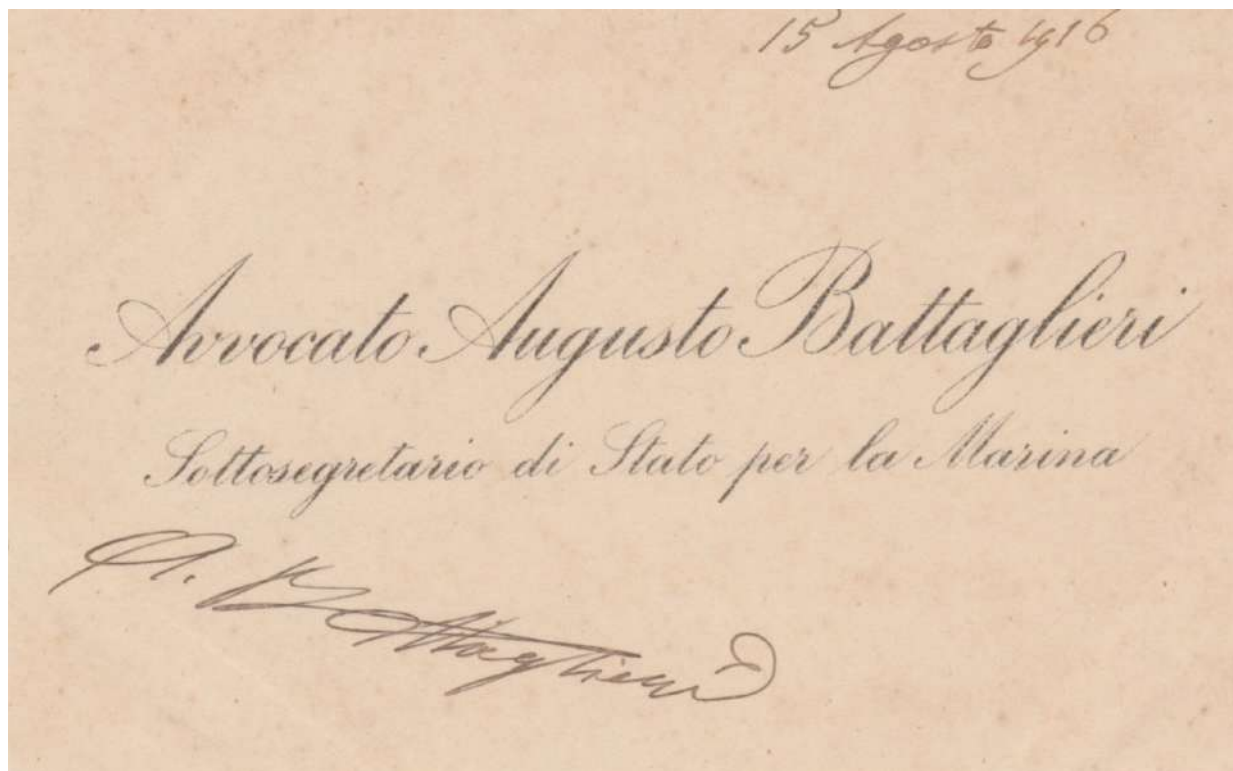 15 Agosto 1916
Avvocato Augusto Battaglieri
Sottosegretario di Stato per la Marina
A. Battaglieri